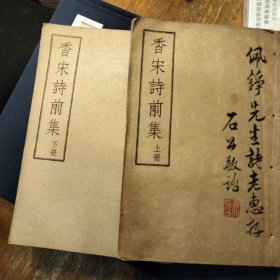 佩錚先生詩老惠存
石公敬詒
香宋詩前集
上冊
香宋詩前集
下冊